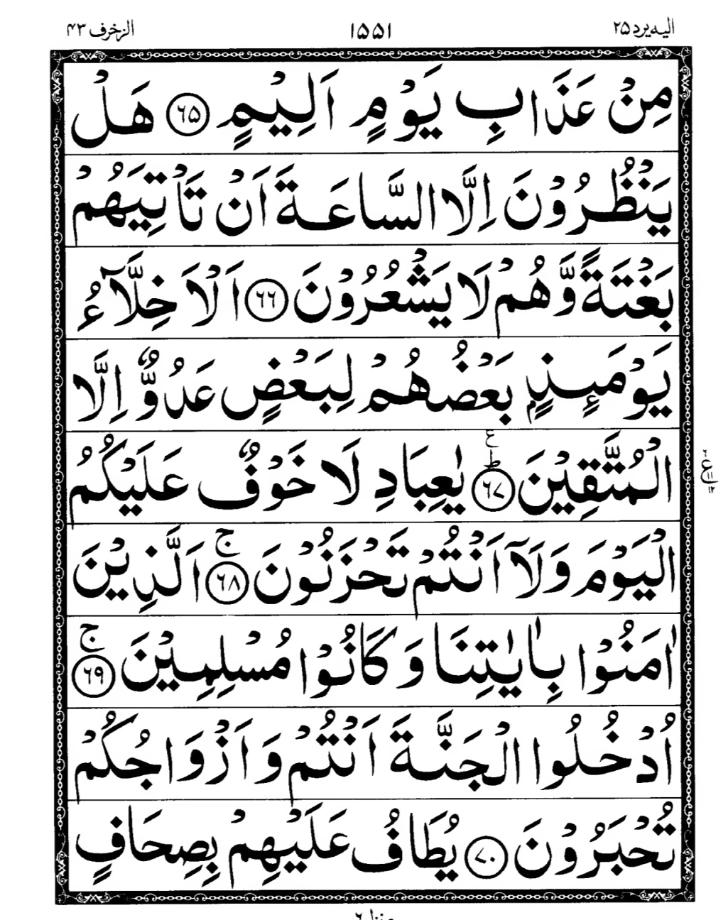 الیه یرد ۲۵ ۱۵۵۱ الزخرف ۴۳
مِنْ عَذَابِ یَوْمٍ اَلِیْمٍ ﴿۶۵﴾ هَلْ
یَنْظُرُوْنَ اِلَّا السَّاعَةَ اَنْ تَاْتِیَهُمْ
بَغْتَةً وَّهُمْ لَا یَشْعُرُوْنَ ﴿۶۶﴾ اَلْاَخِلَّآءُ
یَوْمَئِذٍۭ بَعْضُهُمْ لِبَعْضٍ عَدُوٌّ اِلَّا
الْمُتَّقِیْنَ ﴿۶۷﴾ؕ۠ یٰعِبَادِ لَا خَوْفٌ عَلَیْكُمُ
الْیَوْمَ وَلَاۤ اَنْتُمْ تَحْزَنُوْنَ ﴿۶۸﴾ۚ اَلَّذِیْنَ
اٰمَنُوْا بِاٰیٰتِنَا وَكَانُوْا مُسْلِمِیْنَ ﴿۶۹﴾ۚ
اُدْخُلُوا الْجَنَّةَ اَنْتُمْ وَاَزْوَاجُكُمْ
تُحْبَرُوْنَ ﴿۷۰﴾ یُطَافُ عَلَیْهِمْ بِصِحَافٍ
ع
۶
۱۱
۱۲